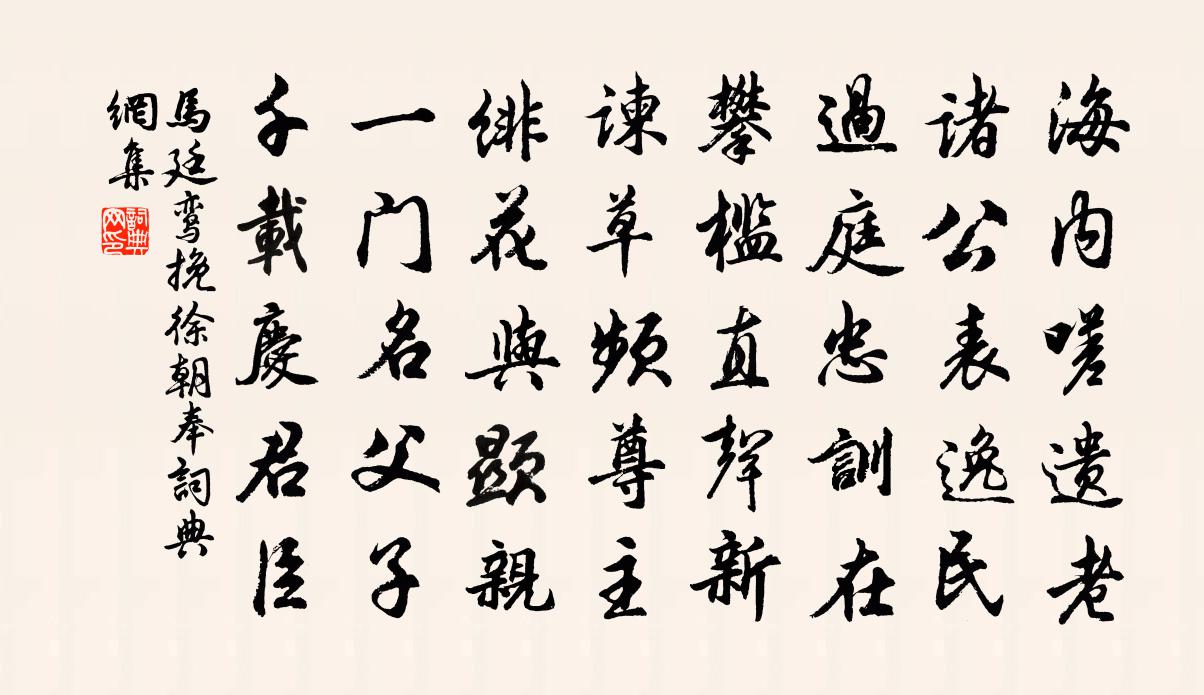 海内嗟遗老
諸公表逸民
過庭忠訓在
攀檻直聲新
諫草頻尊主
緋花與顯親
一门名父子
千載慶君臣
馬廷鸾挽徐朝奉詞典
網集
詞典
网印